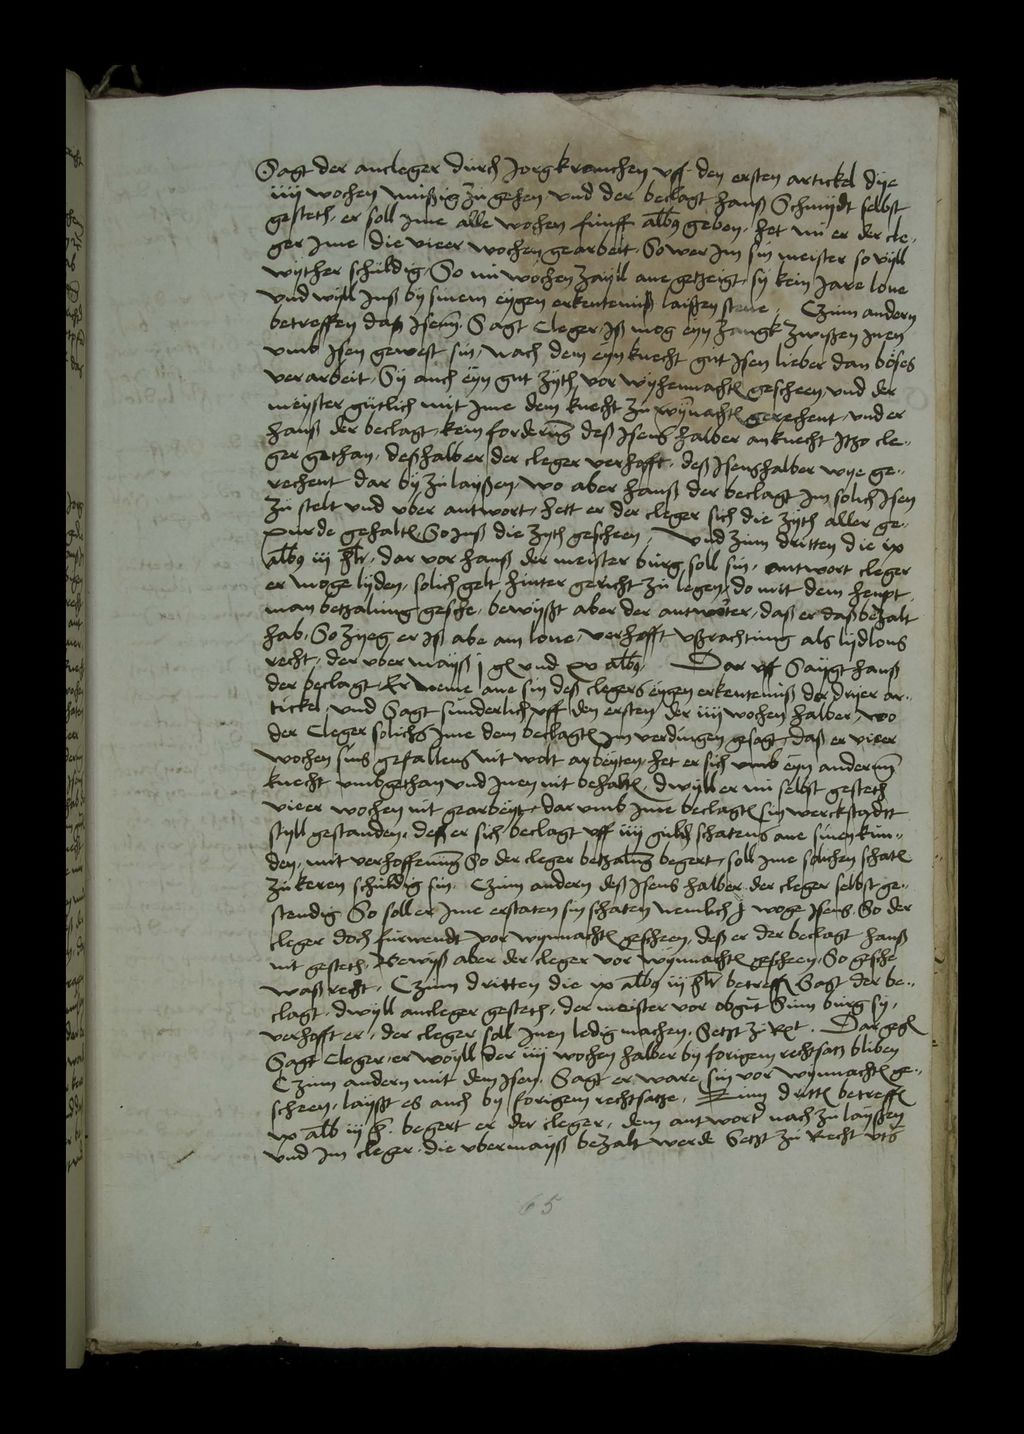 Sagt der ancleger durch Jorgkremchen uff den ersten artickel dye
iiij wochen mußig zu gehen und der beclagt Hanß Schmydt selbst
gesteth er soll ime alle wochen funff alb9 geben, het nu er der cle-
ger ime die vieer wochen gearbeit, So wer im sin meister so vyll
wyther schuldig, So nu wochen zayll ane getzeigt, sy kein Jare lone
und wyll Inß by sinem eygen erkentenuß laißen stene, Czum andern
betreffen daß Isenn, Sagt Cleger, Iß mog eyn zangk zwißen Inen
umb Isen gewest sin, nach dem eyn knecht gut Isen lieber dan böses
verarbeit, Sy auch eyn gut zyth vor wyhennachtl gescheen und der
meyster gutlich mit ime dem knecht zu wynachtl gerechent, und er
Hanß der beclagt, kein forderung deß Isens halber an knecht Itzo cle-
ger gethan, deßhalb er der cleger verhofft, deß Isenshalber wye ge-
rechent dar by zu layßen, wo aber Hanß der beclagt im solich Isen
zu stelt und uber antwort, hett er der cleger sich die zyth aller ge-
purde gehaltl So Inß die zyth gescheen, Und zum dritten die ix
alb9 iij hlr, dar vor Hanß der meister burg soll sin, antwort cleger
er moge lyden, solich gelt hinter gericht zu legen, do mit dem heupt
man betzalung geschee, bewyßt aber der antworter, daß er daß bezalt
hab, So zyeg er Iß abe am lone, verhofft ußrachtung als lydlons
recht, der ubermayß j gl und xv alb9, Dar uff Saygt Hanß
der beclagt, Er neme ane sin deß clegers eygen erkenteniß der dryer ar-
tickel, und Sagt sunderlich uff den ersten der iiij wochen halber, wo
der Cleger solichs ime dem beclagtl im verdingen gesagt, daß er vieer
wochen sins gefallens nit wolt arbeyten, het er sich umb eyn andernn
knecht umbgethan und Inen nit behaltl, dwyll er nu selbst gesteth
vieer wochen nit gearbeyt, dar umb ime beclagtl sin werckstadtt
styll gestanden, deß er sich beclagt uff iiij guld schatens ane sinen kun-
den, mit verhoffenung So der cleger betzalung begert, soll ime solichen schatl
zu keren schuldig sin, Czum andern deß Isens halber der cleger selbst ge-
stendig So soll er ime erstaten sin schaten nemlich j woge Isens, So der
cleger doch furwendt vor wynnachtl gescheen, deß er der beclagt Hanß
nit gesteth, Bewyß aber der cleger vor wynnachtl gescheen, So geschee
waß recht, Czum dritten die ix alb9 iij hlr betreffl Sagt der be-
clagt, dwyll ancleger gesteth, der meister vor obgnt Sum burg sy,
verhofft er, der cleger soll Inen ledig machen, Setzt zu Rxt. Dar gegl
Sagt Cleger, er woyll der iiij wochen halber by forigem rechtsatz bliben
Czum andern mit dem Isen, Sagt er ware sin vor wynnachtl ge-
scheen, layßt es auch by forigem rechtsatze, Zum drittl betreffl
ix alb iij h. begert er der cleger, dem antwort nach zu layßen
und im cleger, die ubermayß bezalt werde Setzt zu Recht uts
65